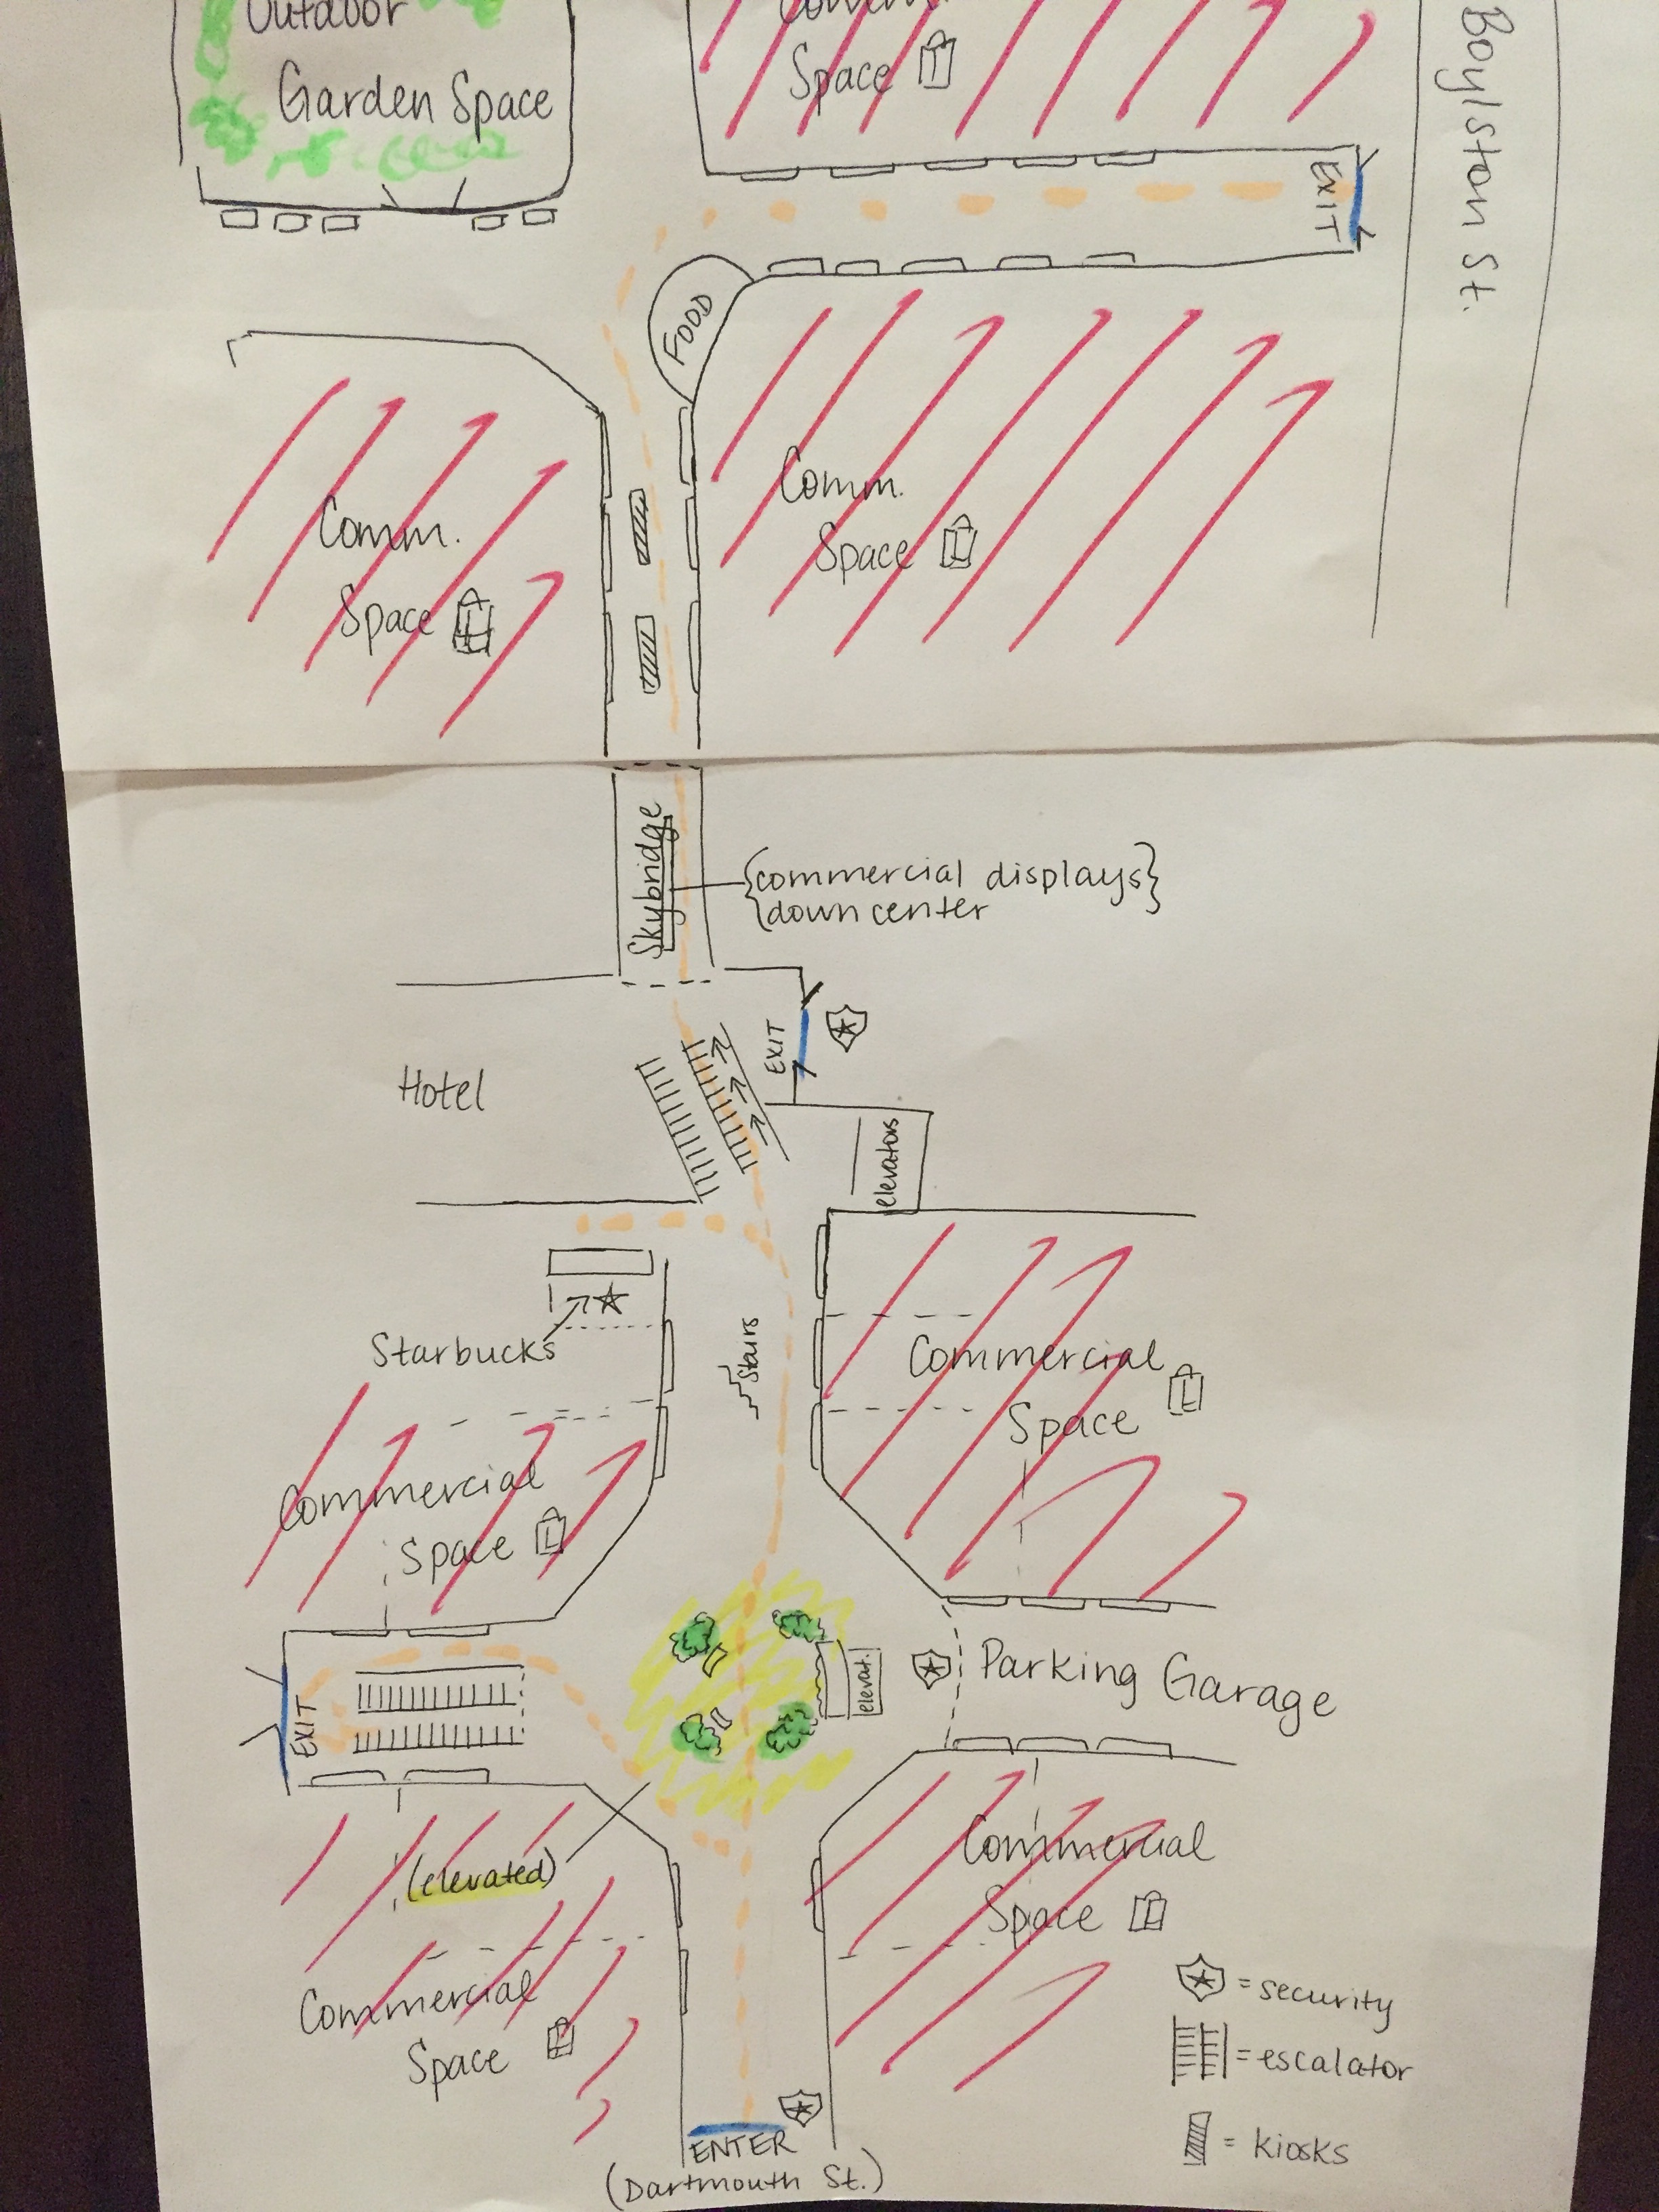 Outdoor
Garden Space
Space
Boylston St.
EXIT
FOOD
Comm.
Space
Comm.
Space
Skybridge
{commercial displays}
{down center
EXIT
Hotel
elevators
Stairs
Starbucks
Commercial
Space
Commercial
Space
EXIT
elevat.
Parking Garage
(elevated)
Commercial
Space
Commercial
Space
= security
= escalator
= kiosks
ENTER
(Dartmouth St.)